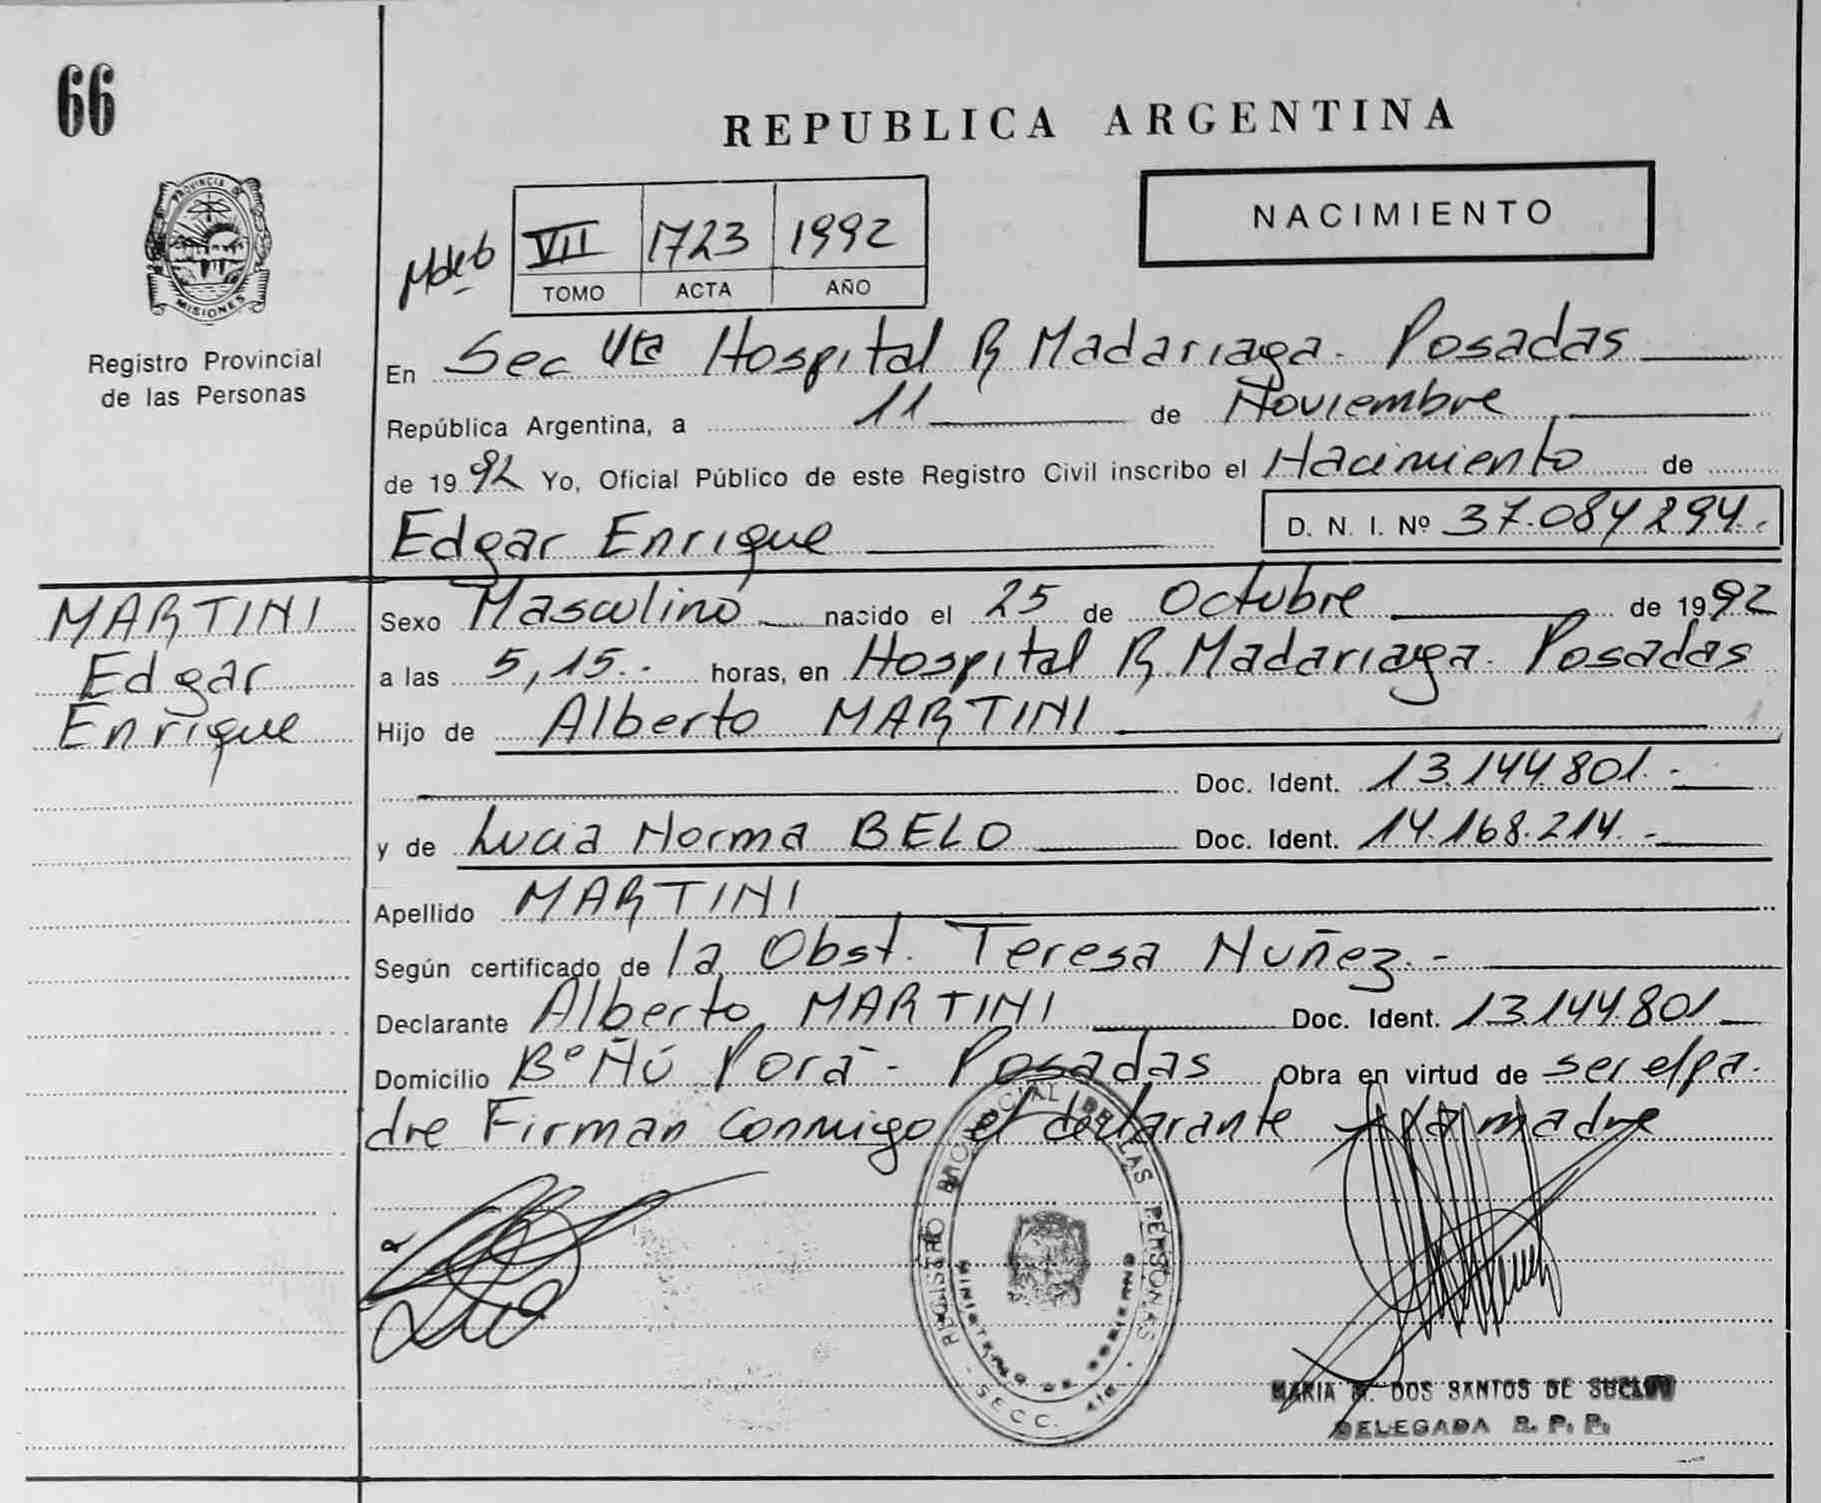 66
REPUBLICA ARGENTINA
NACIMIENTO
VII 1723 1992
TOMO ACTA AÑO
PROVINCIA DE
MISIONES
Registro Provincial
de las Personas
En Sec 4ta Hospital R Madariaga. Posadas
República Argentina, a 11 de Noviembre
de 1992 Yo, Oficial Público de este Registro Civil inscribo el Nacimiento de
Edgar Enrique D. N. I. Nº 37.084294.
MARTINI
Edgar
Enrique
Sexo Masculino nacido el 25 de Octubre de 1992
a las 5,15.- horas, en Hospital R. Madariaga. Posadas
Hijo de Alberto MARTINI
Doc. Ident. 13.144.801.-
y de Lucia Norma BELO Doc. Ident. 14.168.214.-
Apellido MARTINI
Según certificado de la Obst. Teresa Nuñez.-
Declarante Alberto MARTINI Doc. Ident. 13.144.801
Domicilio Bº Ñú Porá - Posadas Obra en virtud de ser el pa-
dre Firman conmigo el declarante y la madre
REGISTRO PROVINCIAL DE LAS PERSONAS
MINISTERIO DE GOBIERNO
SECC. 4ta
MARIA DOS SANTOS DE
DELEGADA R. P. P.